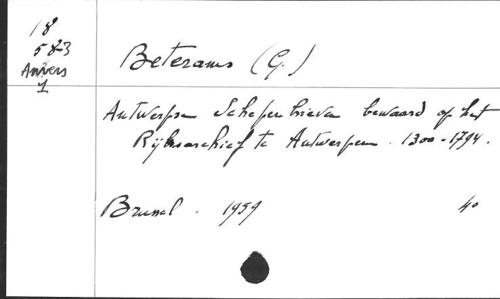 18
583
Anvers
1
Beterams (G.)
Antwerpse Schepenbrieven bewaard op het
Rijksarchief te Antwerpen. 1300-1794.
Brussel. 1959 4o